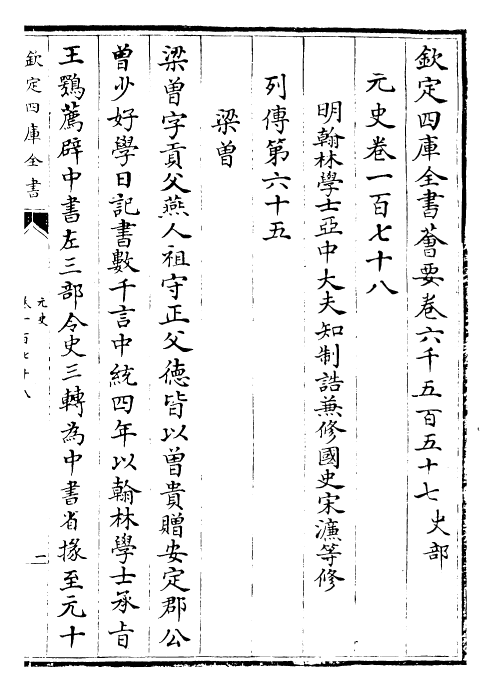 欽定四庫全書薈要卷六千五百五十七 史部
元史卷一百七十八
明翰林學士亞中大夫知制誥兼修國史宋濂等修
列傳第六十五
梁曾
梁曾字貢父燕人祖守正父德皆以曾貴贈安定郡公
曾少好學日記書數千言中統四年以翰林學士承旨
王鶚薦辟中書左三部令史三轉為中書省掾至元十
欽定四庫全書
元史
卷一百七十八